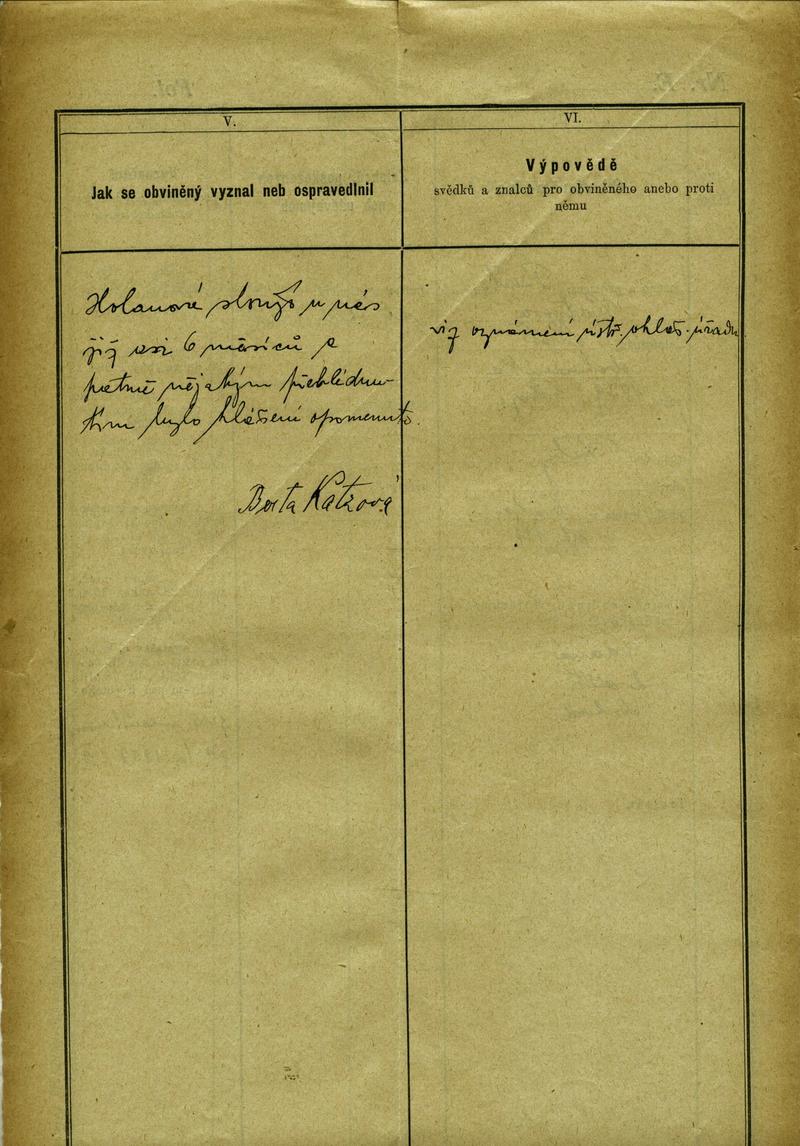 V.
Jak se obviněný vyznal neb ospravedlnil
Holanová slouží u nás
již asi 6 měsíců a
patrně nějakým přehlédnu-
tím bylo hlášení opomenuto.
Berta Katzová
VI.
Výpovědě
svědků a znalců pro obviněného anebo proti
němu
viz oznámení ústř. ohlaš. úřadu